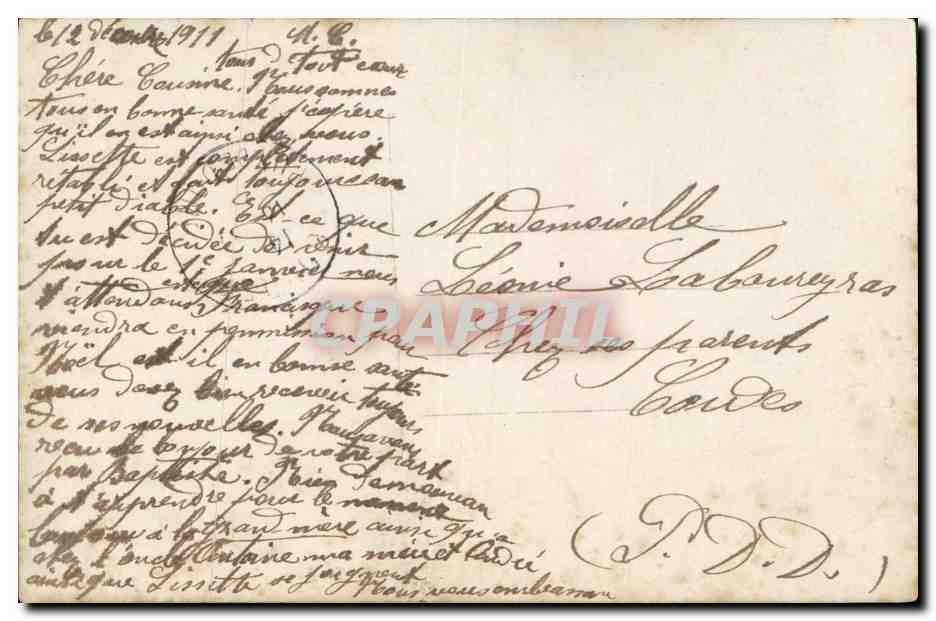 le 12 décembre 1911
A. C.
tous d tout cœur
Chére Cousine. Nous sommes
tous en bonne santé j'éspére
qu'il en est ainsi chez vous.
Lissette est complètement
rétabli et fait toujours son
petit diable. Est-ce que
tu est décidée de venir
pour le 1e janvier nous
t'attendons Francisque
viendra en permission pour
Noël est il en bonne santé
vous devez bien recevoir toujours
de ses nouvelles. Nous avons
recu le bonjour de votre part
par Baptiste. Rien de nouveau
à t'apprendre pour le moment
bonjour à la grand mère ainsi qu'a
chez l'oncle Antoine ma mère et André
ainsi que Lissette se joignent
Nous vous embrassons
Mademoiselle
Léonie Laboureyras
Chez ses parents
Condes
(P. D. D.)
CPAPHIL